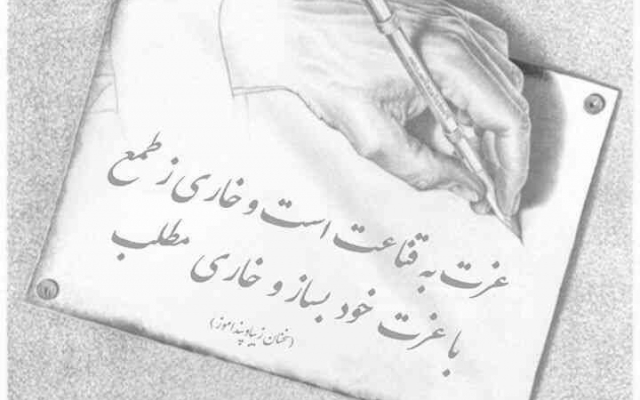 عزت به قناعت است و خاری ز طمع
با عزت خود بساز و خاری مطلب
(سخنان زیبا و پندآموز)